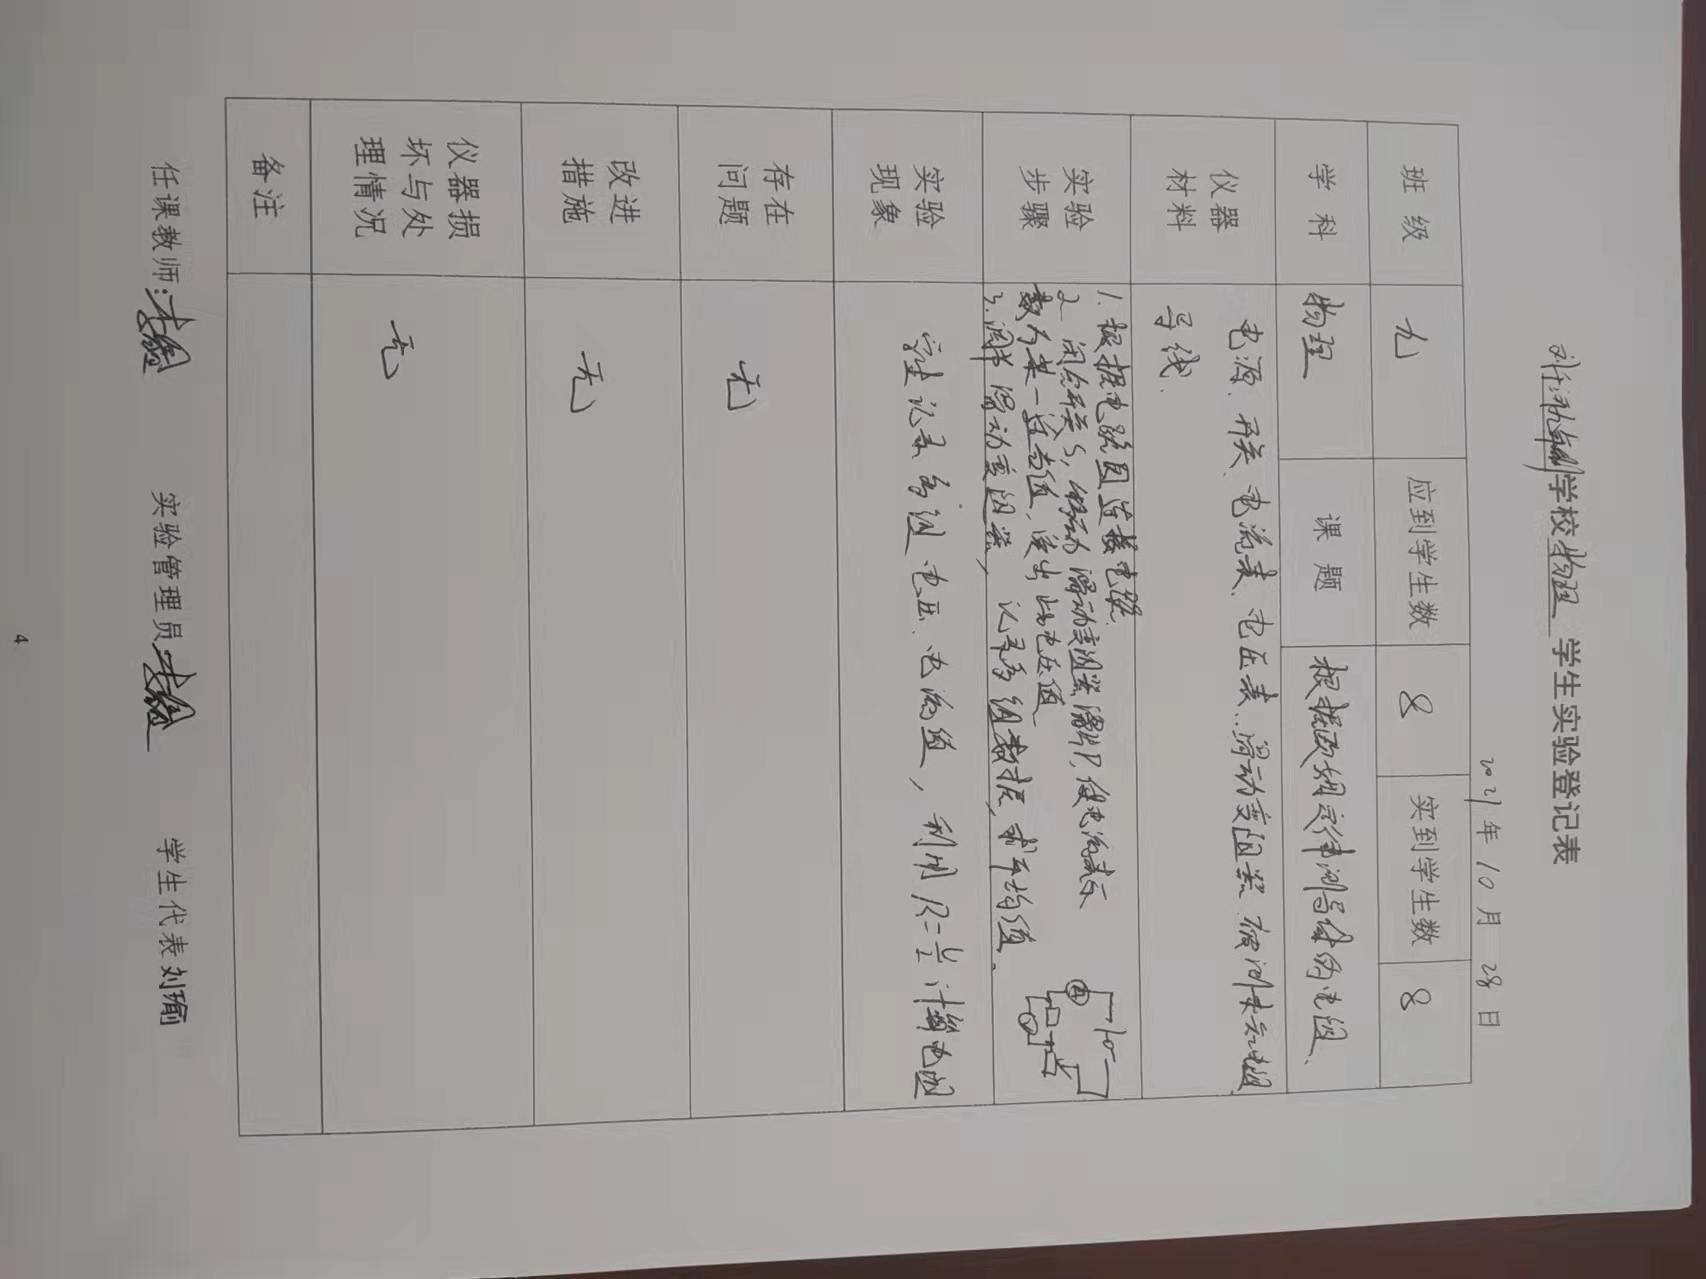 学校物理学生实验登记表
2021年10月28日
班级 九 应到学生数 8 实到学生数 8
学科 物理 课题 根据欧姆定律测导体的电阻、
仪器材料 电源、开关、电流表、电压表、滑动变阻器、被测未知电阻
导线.
实验步骤 1. 根据电路图连接电路.
2 闭合开关S, 移动滑动变阻器滑片P, 使电流表示
数为某一适当值, 读出此电压值
3. 调节滑动变阻器, 记录多组数据, 求平均值.
A
实验现象 记录各组电压、电流值, 利用R=U/I计算电阻
存在问题 无
改进措施 无
仪器损坏与处理情况 无
备注
任课教师: 实验管理员 学生代表 刘瑜
4